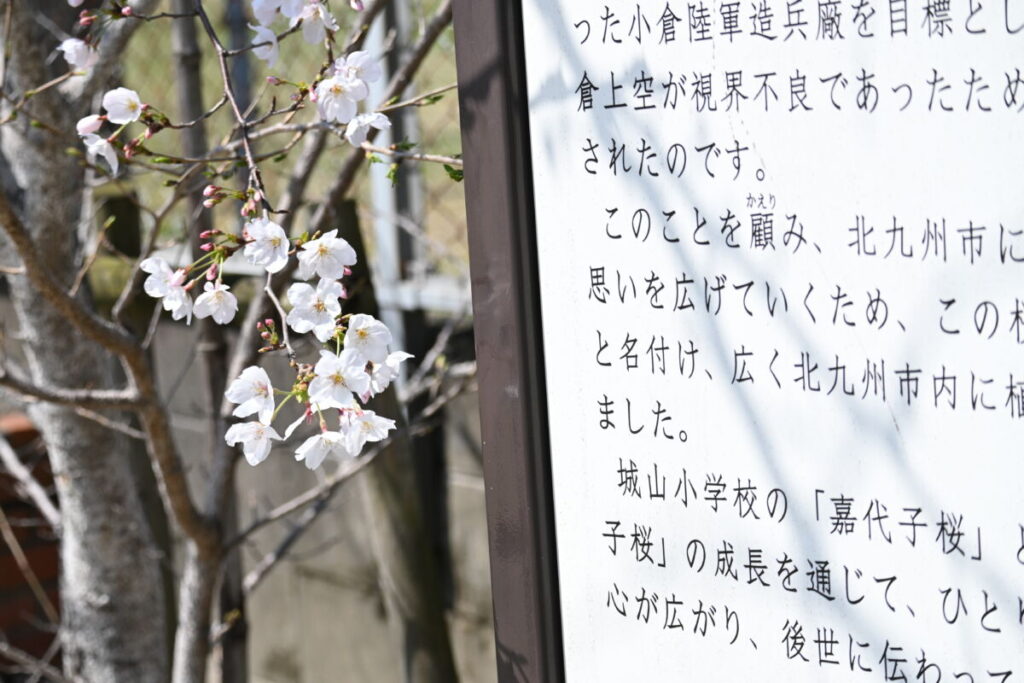 った小倉陸軍造兵廠を目標とし
倉上空が視界不良であったため
されたのです。
このことを顧み、北九州市に
かえり
思いを広げていくため、この
と名付け、広く北九州市内に植
ました。
城山小学校の「嘉代子桜」と
子桜」の成長を通じて、ひとり
心が広がり、後世に伝わって